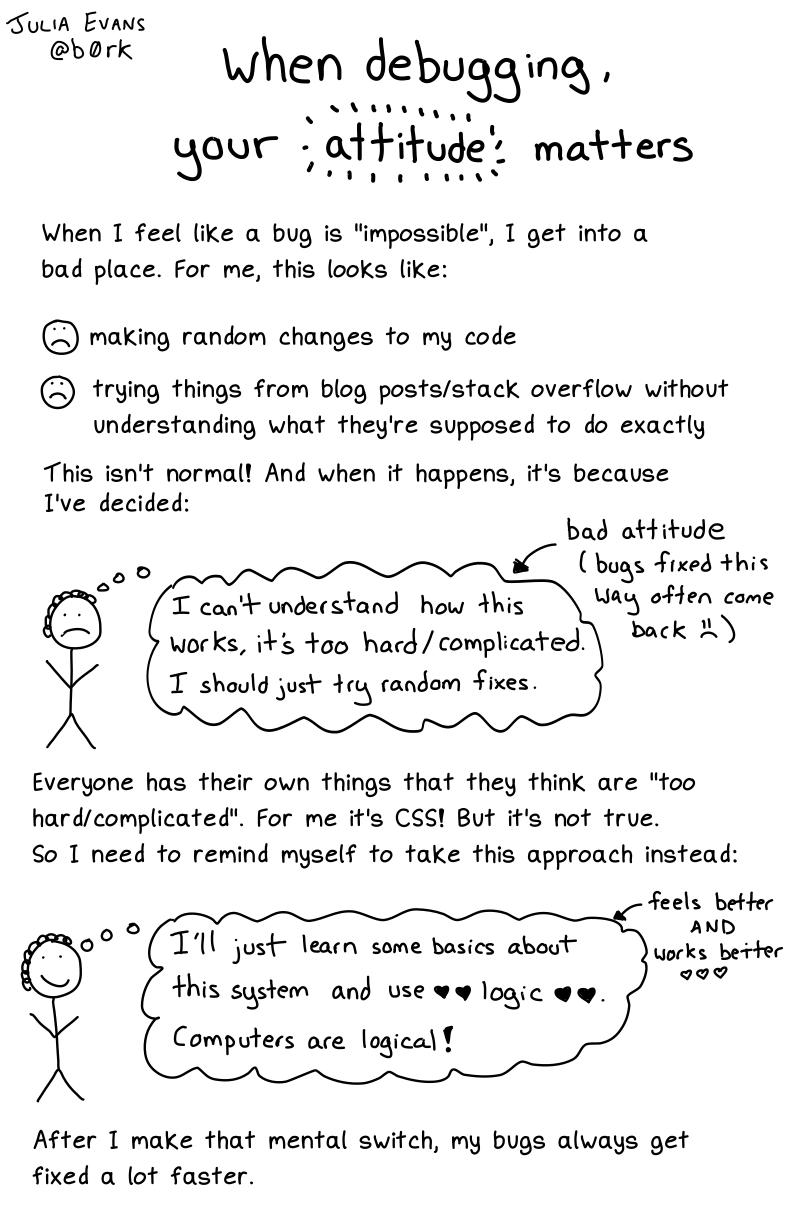 JULIA EVANS
@b0rk
When debugging,
your attitude matters
When I feel like a bug is "impossible", I get into a
bad place. For me, this looks like:
making random changes to my code
trying things from blog posts/stack overflow without
understanding what they're supposed to do exactly
This isn't normal! And when it happens, it's because
I've decided:
bad attitude
(bugs fixed this
way often come
back )
I can't understand how this
works, it's too hard/complicated.
I should just try random fixes.
Everyone has their own things that they think are "too
hard/complicated". For me it's CSS! But it's not true.
So I need to remind myself to take this approach instead:
feels better
AND
works better
♡♡♡
I'll just learn some basics about
this system and use ♥♥ logic ♥♥.
Computers are logical!
After I make that mental switch, my bugs always get
fixed a lot faster.